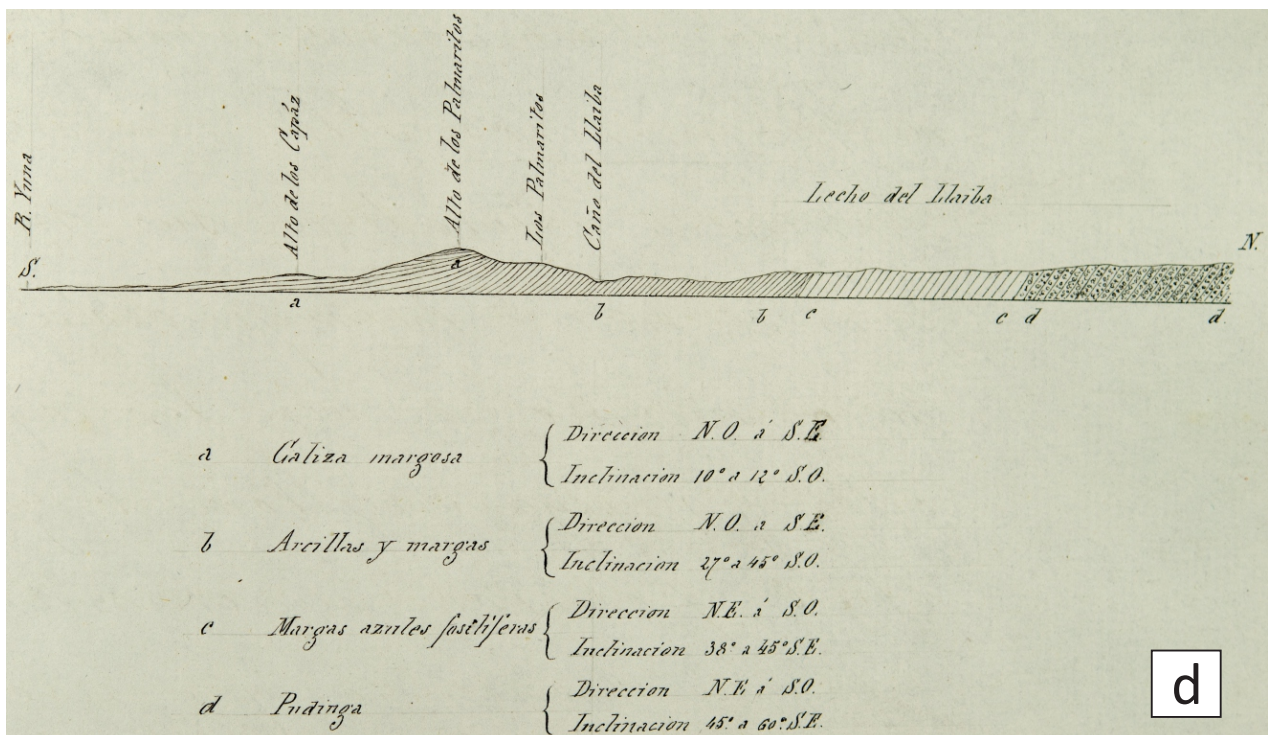 R. Yuna
Alto de los Capáz
Alto de los Palmaritos
Los Palmaritos
Caño del Llaiba
Lecho del Llaiba
S.
N.
a
a
b
b
c
c
d
d
a Caliza margosa { Direccion N.O. á S.E.
Inclinacion 10° a 12° S.O.
b Arcillas y margas { Direccion N.O. a S.E.
Inclinacion 27° a 45° S.O.
c Margas azules fosilíferas { Direccion N.E. á S.O.
Inclinacion 38° a 45° S.E.
d Pudinga { Direccion N.E á S.O.
Inclinacion 45° a 60° S.E.
d